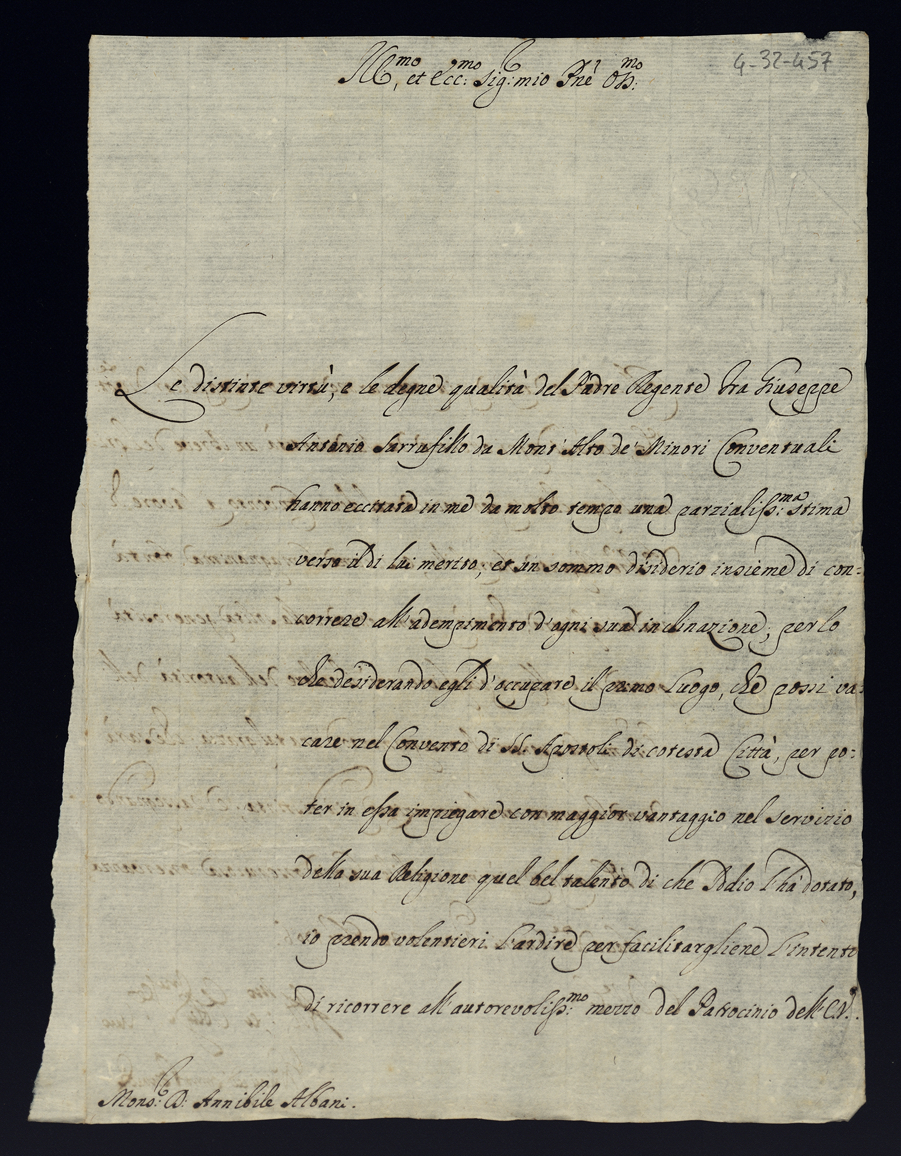 Ill.mo, et Ecc:mo Sig: mio Pne Oss:mo
4-32-457
Le distinte virtù, e le degne qualità del Padre Regente Fra Giuseppe
Antonio Sarrafillo da Mont'Alto de' Minori Conventuali
hanno eccitata in me da molto tempo una parzialiss:ma stima
verso il di lui merito, et un sommo disiderio insieme di con=
correre all'adempimento d'ogni sua inclinazione; per lo
che desiderando egli d'occupare il primo Luogo, che possi va=
care nel Convento di SS. Apostoli di cotesta Città, per po=
ter in essa impiegare con maggior vantaggio nel servizio
della sua Religione quel bel talento di che Iddio l'hà dotato,
io prendo volentieri l'ardire per facilitargliene l'intento
di ricorrere all'autorevoliss:mo mezzo del Patrocinio dell'E.V.
Mons: D: Annibile Albani.